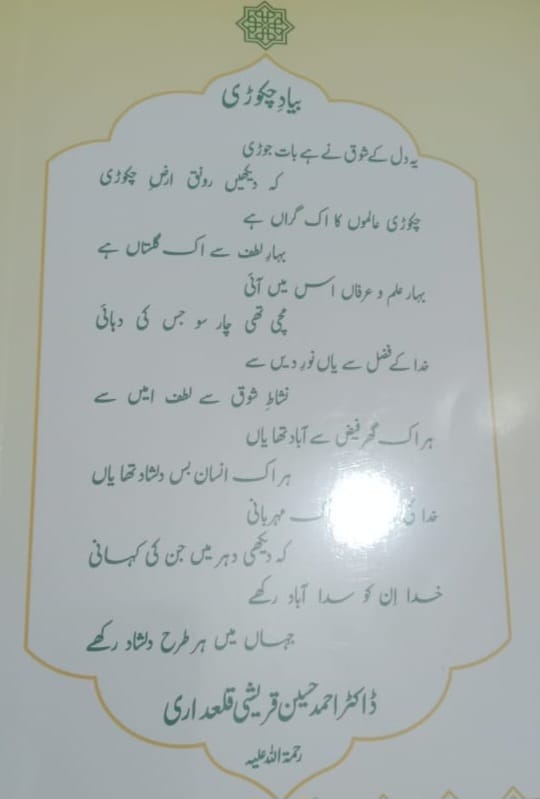 بیادِ چکوڑی
یہ دل کے شوق نے ہے بات جوڑی
کہ دیکھیں رونق ارضِ چکوڑی
چکوڑی عالموں کا اک گراں ہے
بہارِ لطف سے اک گلستاں ہے
بہار علم و عرفاں اس میں آئی
مچی تھی چار سو جس کی دہائی
خدا کے فضل سے یاں نورِ دیں سے
نشاطِ شوق سے لطف امیں سے
ہر اک گھر فیض سے آباد تھا یاں
ہر اک انسان بس دلشاد تھا یاں
خدا مہربانی
کہ دیکھی دہر میں جن کی کہانی
خدا اِن کو سدا آباد رکھے
جہاں میں ہر طرح دلشاد رکھے
ڈاکٹر احمد حسین قریشی قلعداری
رحمۃ اللہ علیہ